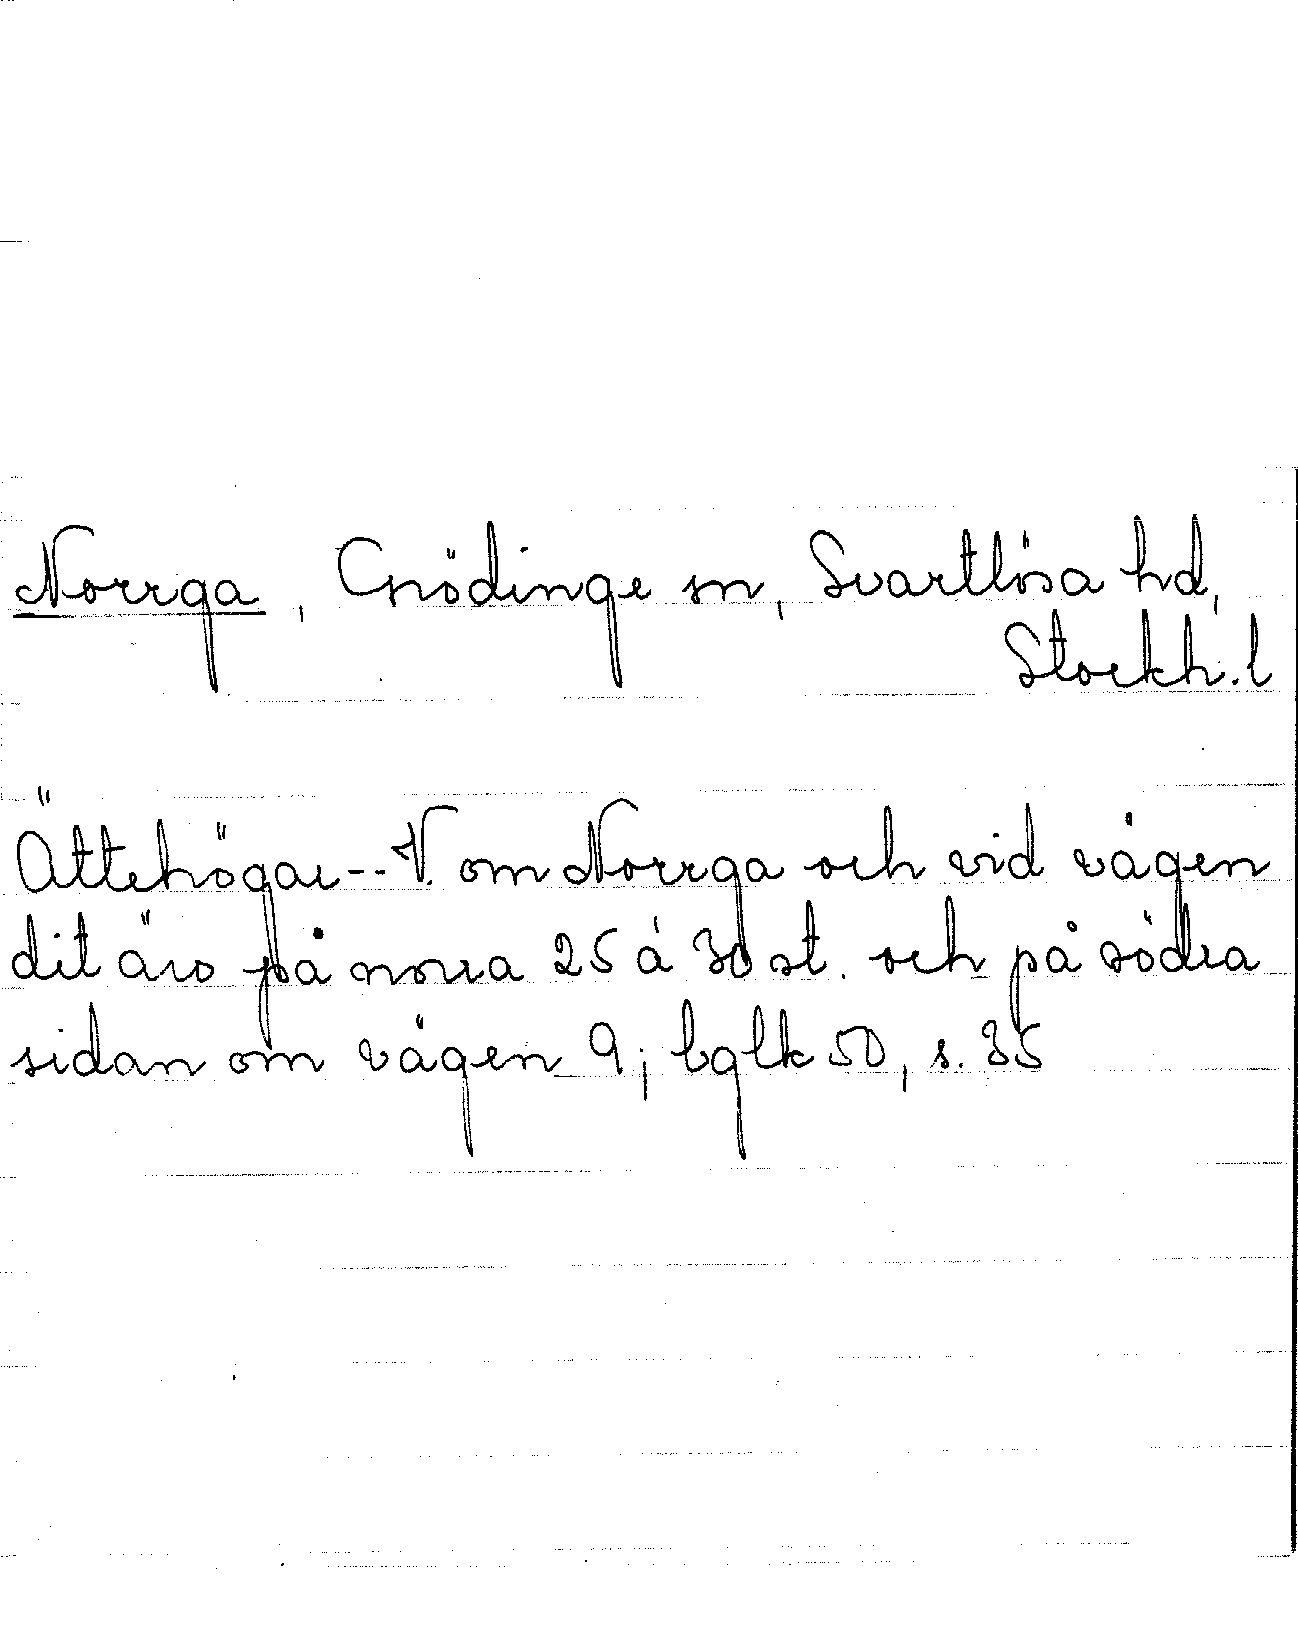 Norrga, Grödinge sn, Svartlösa hd,
Stockh. l
Ättehögar -- V. om Norrga och vid vägen
dit äro på norra 25 á 30 st. och på södra
sidan om vägen 9; bglk 50, s. 35